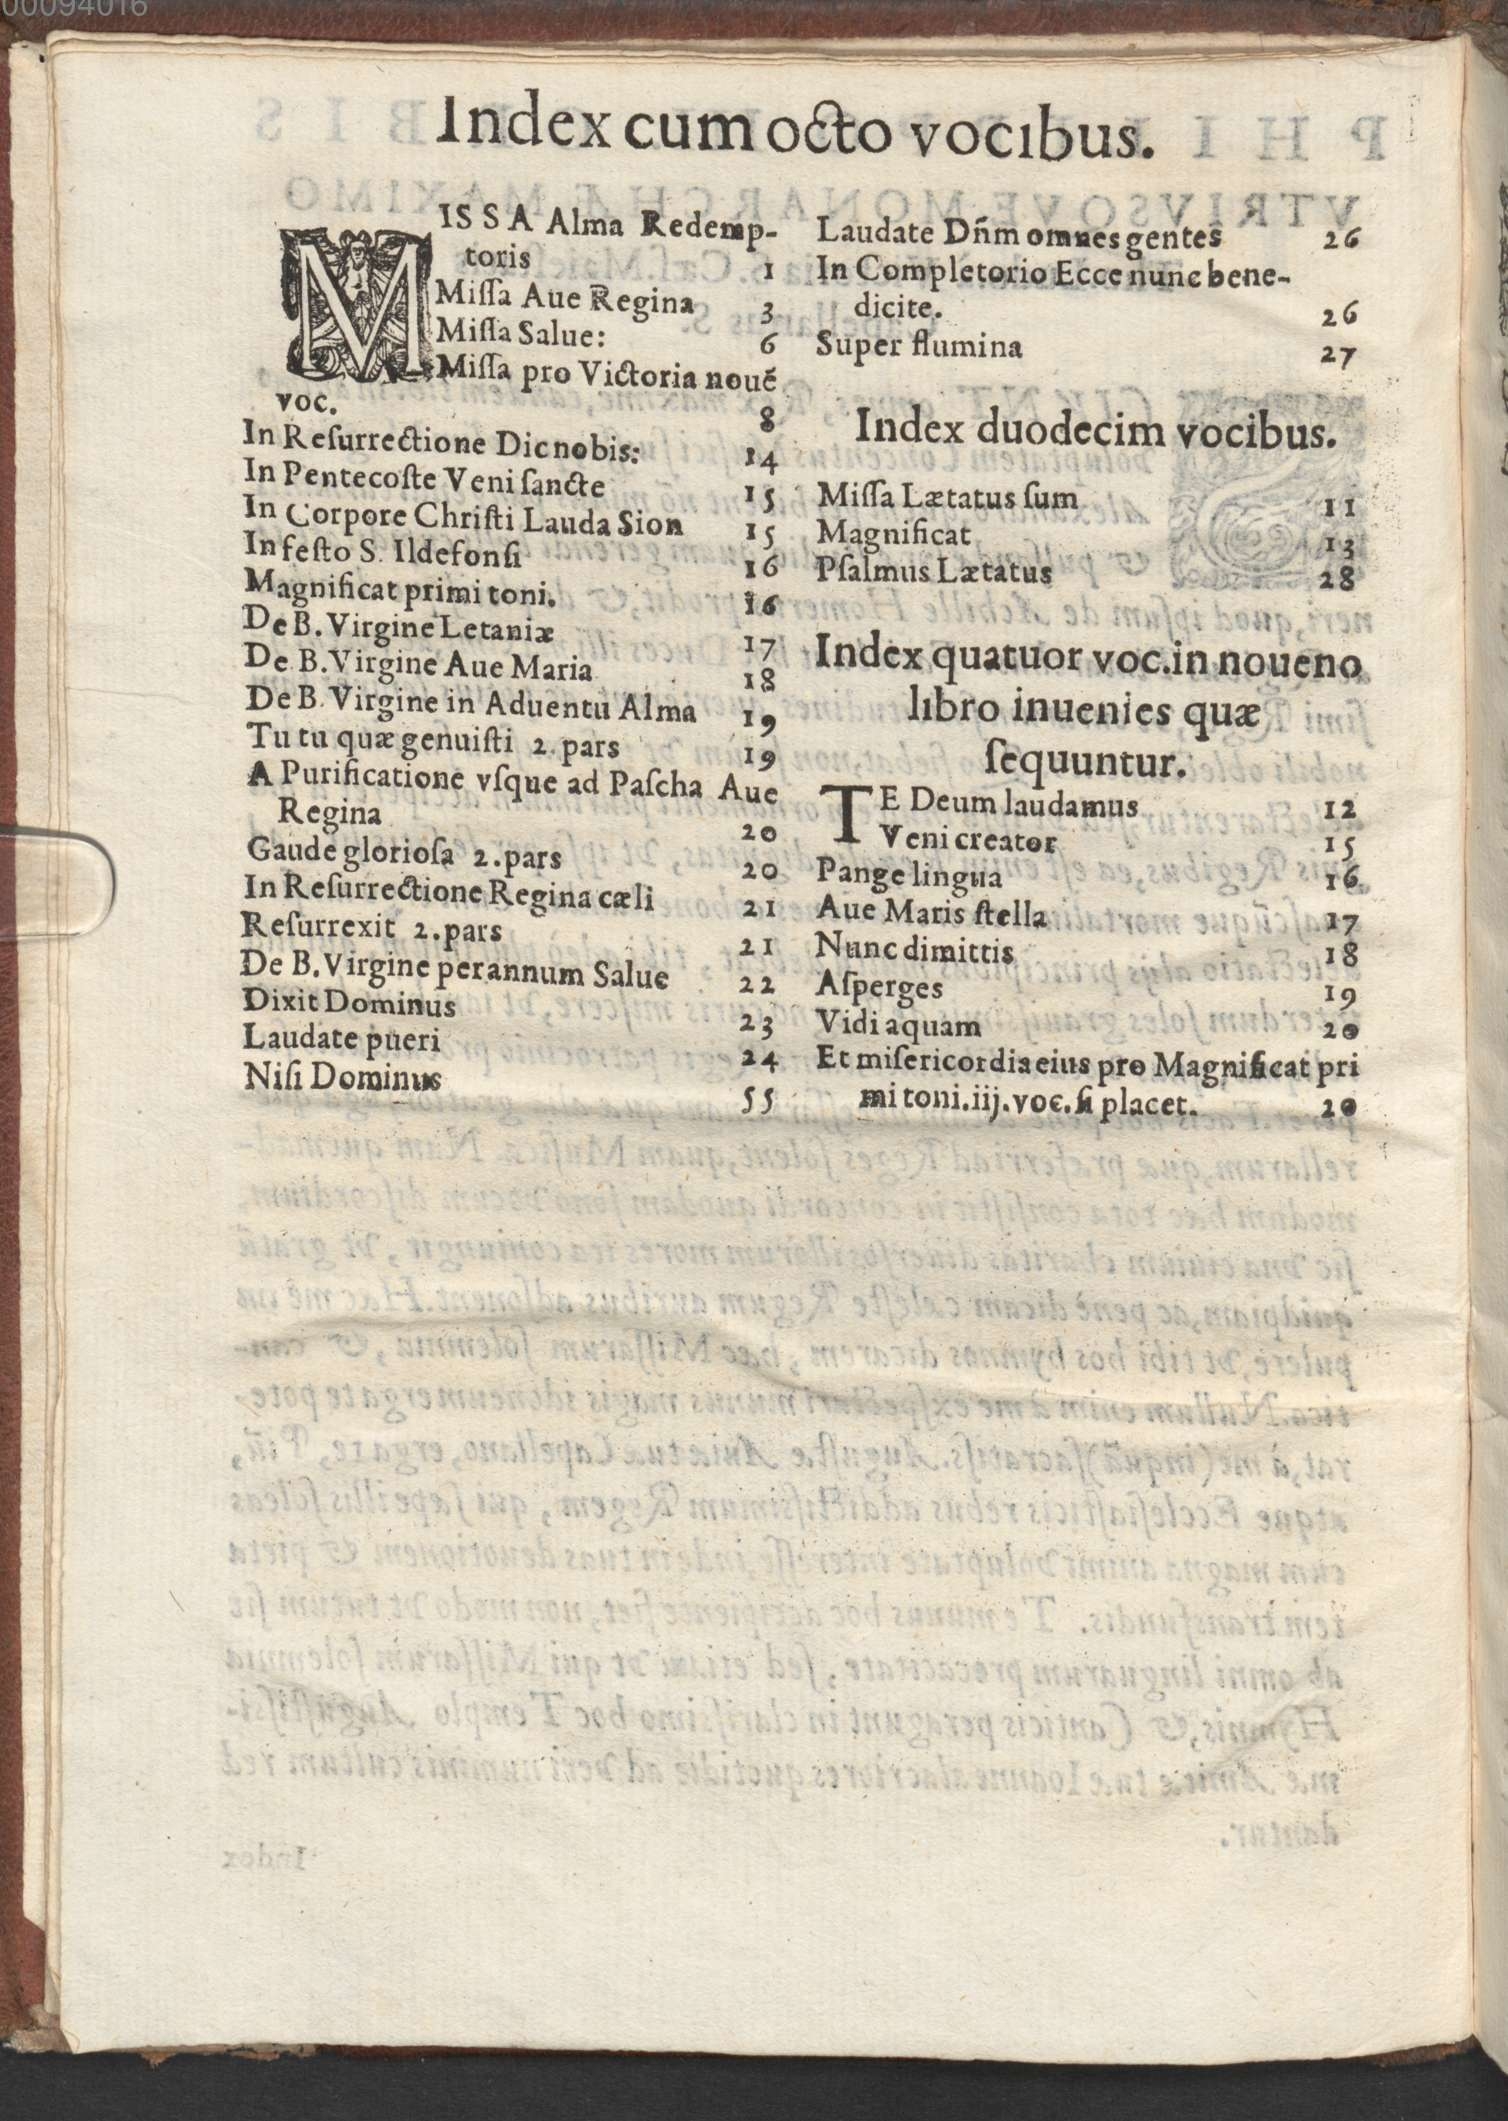 00094016
Index cum octo vocibus.
MISSA Alma Redemp-
toris 1
Missa Aue Regina 3
Missa Salue: 6
Missa pro Victoria noué
voc. 8
In Resurrectione Dic nobis: 14
In Pentecoste Veni sancte 15
In Corpore Christi Lauda Sion 15
In festo S. Ildefonsi 16
Magnificat primi toni. 16
De B. Virgine Letaniæ 17
De B. Virgine Aue Maria 18
De B. Virgine in Aduentu Alma 19
Tu tu quæ genuisti 2. pars 19
A Purificatione vsque ad Pascha Aue
Regina 20
Gaude gloriosa 2. pars 20
In Resurrectione Regina cæli 21
Resurrexit 2. pars 21
De B. Virgine per annum Salue 22
Dixit Dominus 23
Laudate pueri 24
Nisi Dominus 55
Laudate Dñm omnes gentes 26
In Completorio Ecce nunc bene-
dicite. 26
Super flumina 27
Index duodecim vocibus.
Missa Lætatus sum 11
Magnificat 13
Psalmus Lætatus 28
Index quatuor voc. in noueno
libro inuenies quæ
sequuntur.
TE Deum laudamus 12
Veni creator 15
Pange lingua 16
Aue Maris stella 17
Nunc dimittis 18
Asperges 19
Vidi aquam 20
Et misericordia eius pro Magnificat pri
mi toni. iij. voc. si placet. 20